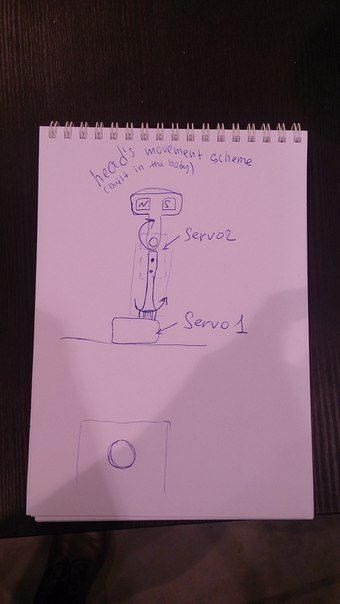 head's movement scheme
(built in the body)
N S
Servo2
Servo1